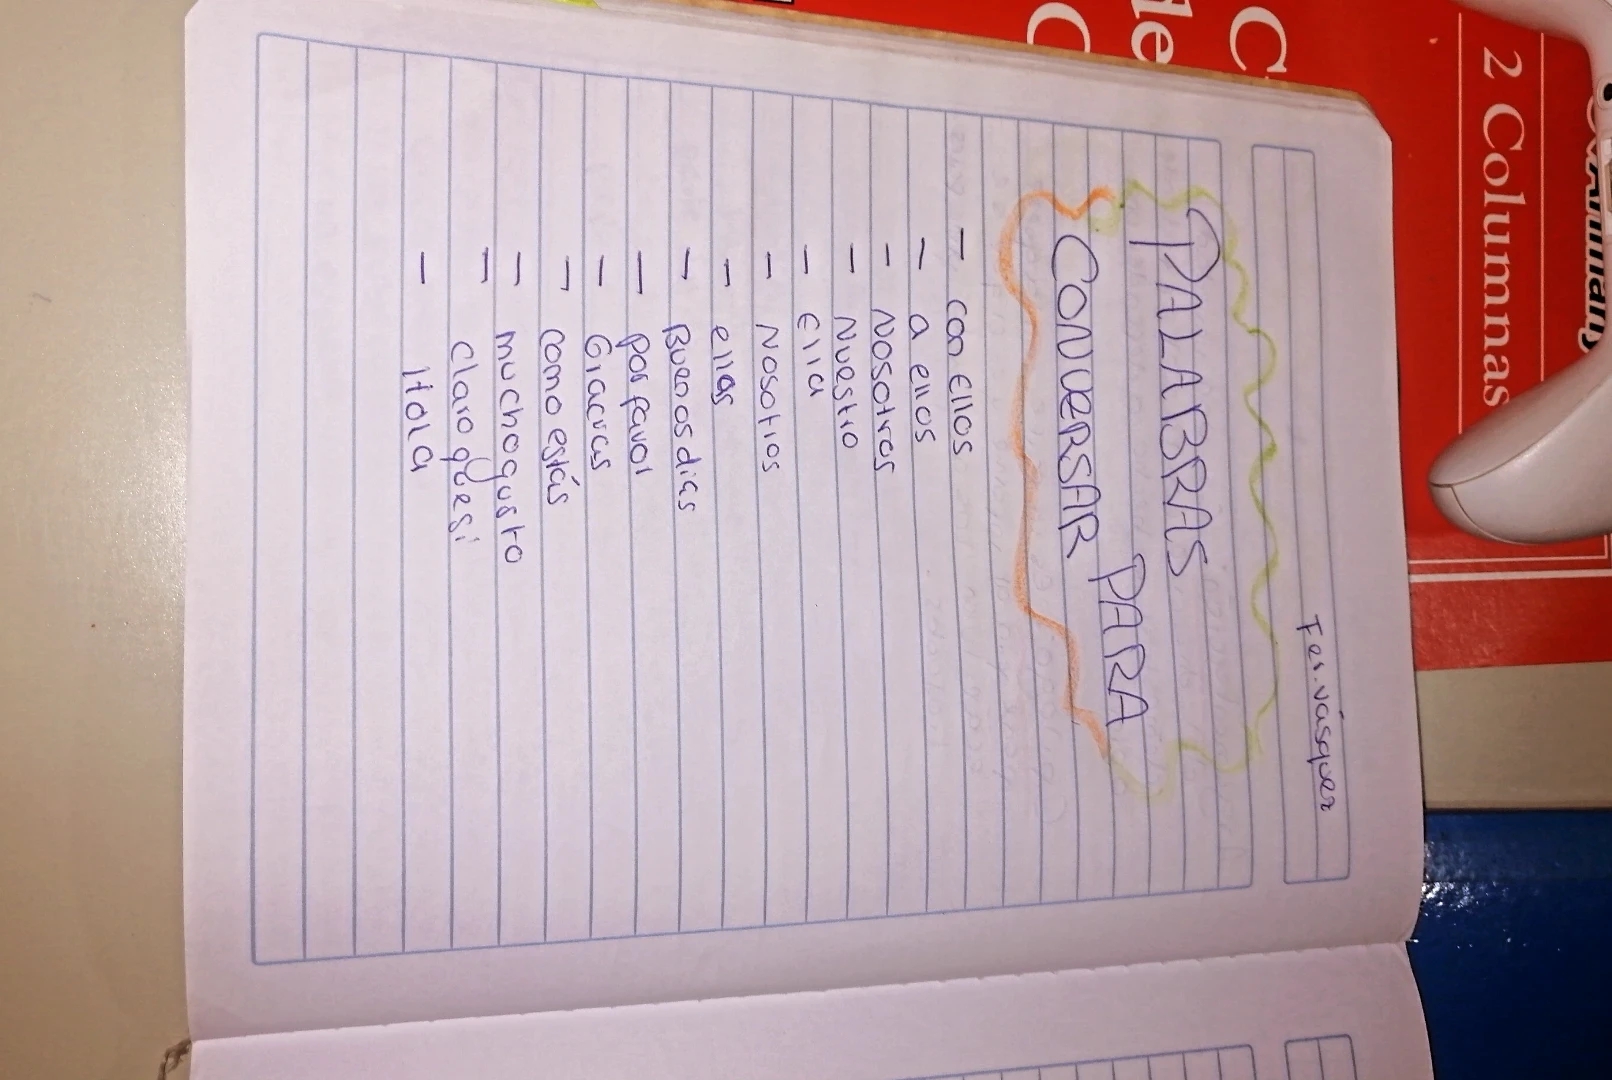 Fer. vásquez
PALABRAS
PARA
CONVERSAR
- con Ellos
- a ellos
- Nosotros
- Nuestro
- Ella
- Nosotros
- ellas
- Buenos dias
- por favor
- Gracias
- como estás
- mucho gusto
- claro que si
- Hola
2 Columnas
de
C
C